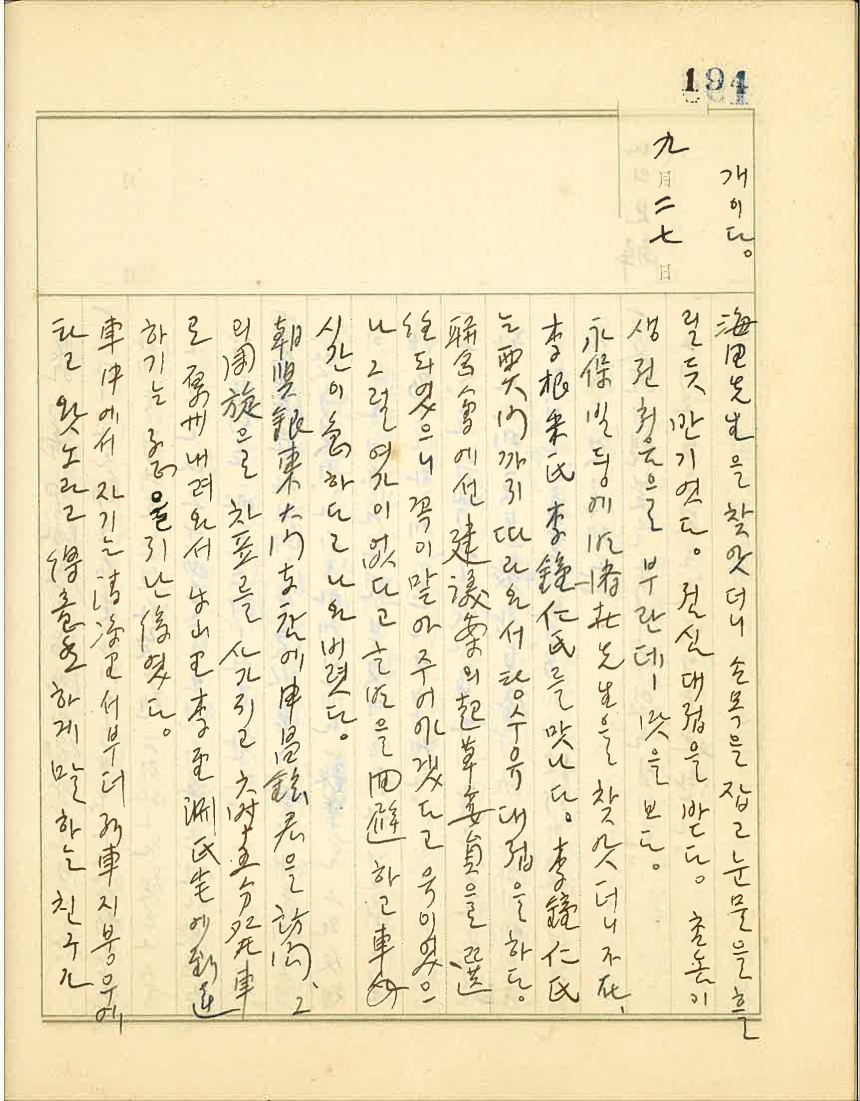 194
개이다。
九月二七日
海田先生을 찾앗더니 손목을 잡고 눈물을 흘
릴듯 반기였다。점심대접을 받다。촌놈이
생전 첨으로 부란데 맛을 보다。
永保빌딍에 先生을 찾앗더니 不在、
李根米氏 李鐘仁氏를 맛나다。李鐘仁氏
는 西大門까지 따라와서 탕수육 대접을 하다。
聯合會에선 建議案의 起草委員을 選
任되였으니 꼭이 맡아 주어야겠다고 욱이였으
나 그럴 여가이 없다고 을 回避하고 車
시간이 急하다고 나와버렸다。
朝興銀東大門支店에 申昌鉉君을 訪問、그
의 周旋으로 차표를 사가지고 六時十五分發車
로 原州내려와서 李 氏宅에 到達
하기는 을 지난後였다。
車中에서 자기는 淸凉里서부터 列車지붕우에
타고 왓노라고 하게 말하는 친구가